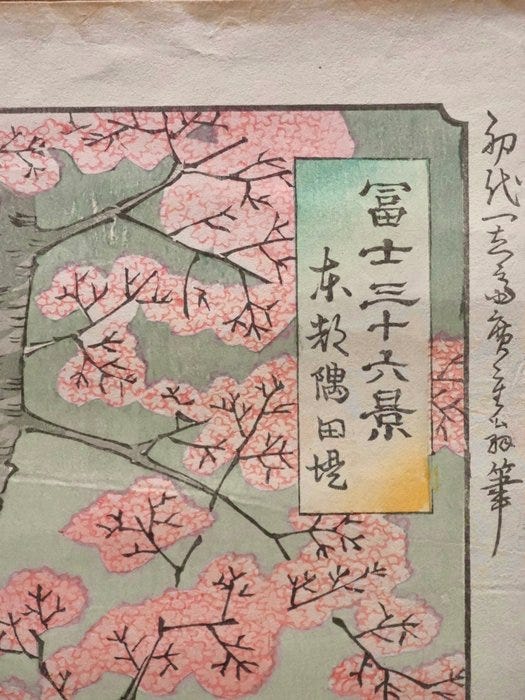 初代一立齋廣重翁筆
冨士三十六景
東都隅田堤